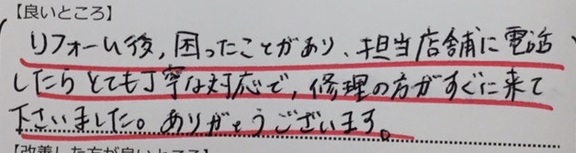 【良いところ】
リフォーム後，困ったことがあり、担当店舗に電話
したらとても丁寧な対応で，修理の方がすぐに来て
下さいました。ありがとうございます。
【改善した方が良いところ】